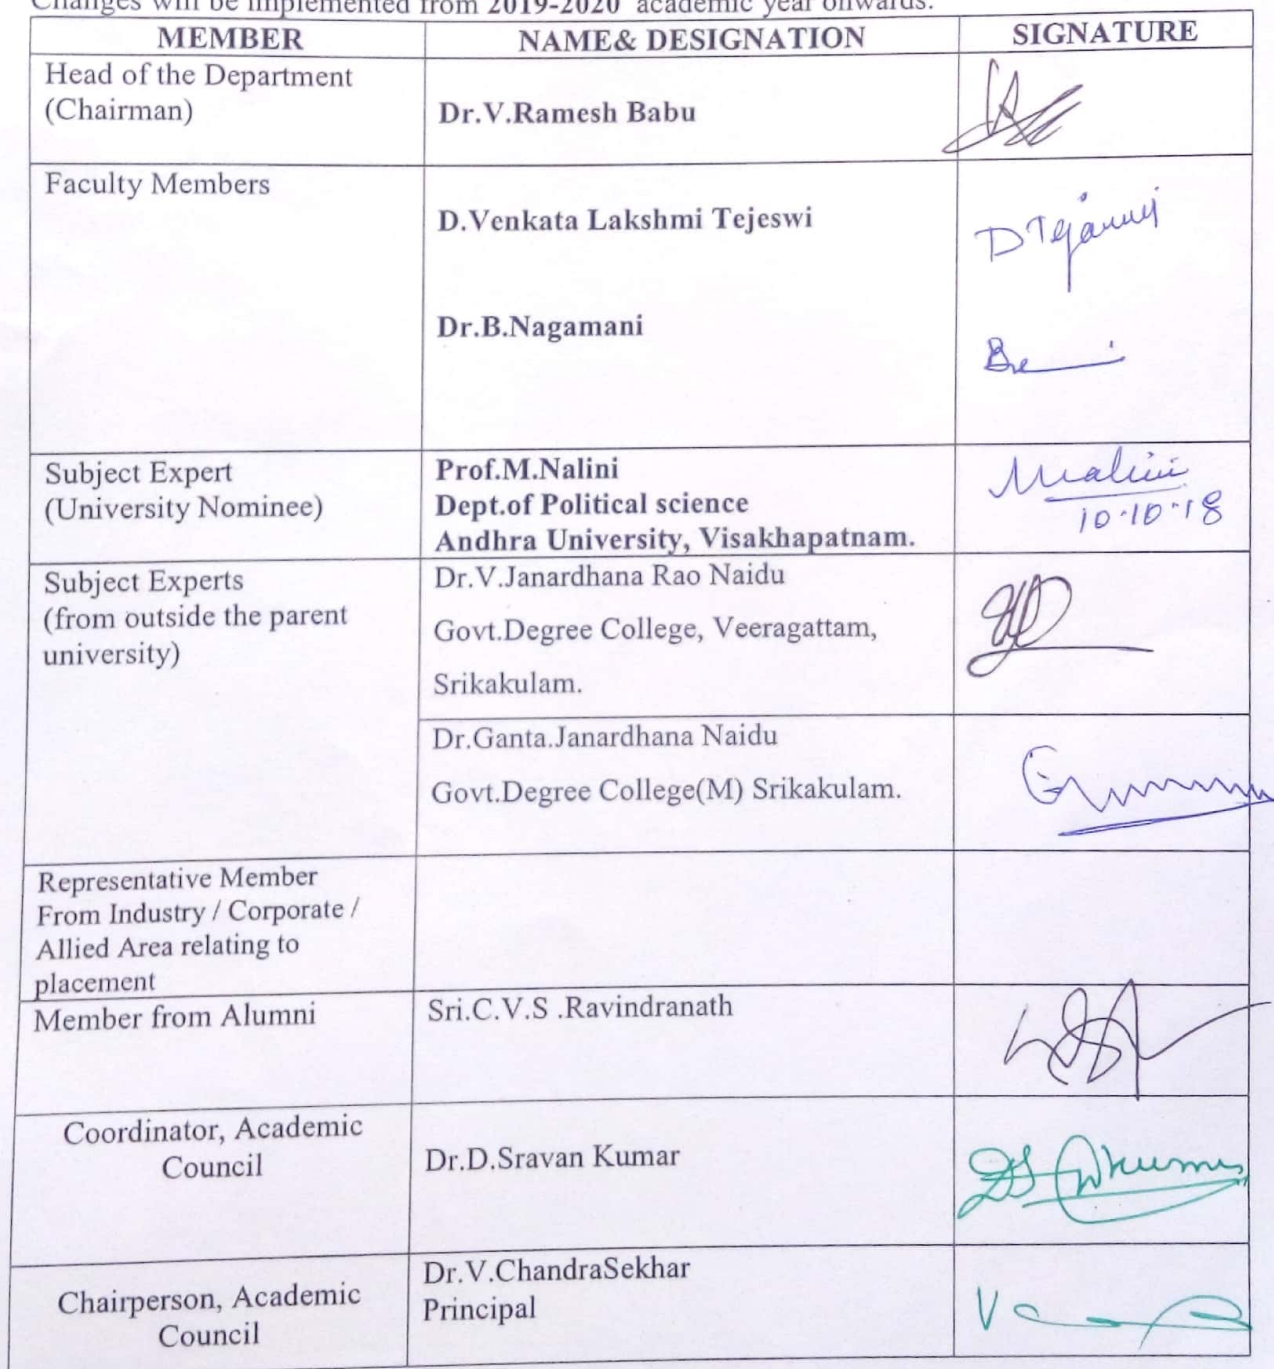 Changes will be implemented from 2019-2020 academic year onwards.
MEMBER NAME& DESIGNATION SIGNATURE
Head of the Department
(Chairman)
Dr.V.Ramesh Babu
Faculty Members
D.Venkata Lakshmi Tejeswi
D Tejaswi
Dr.B.Nagamani
Subject Expert
(University Nominee)
Prof.M.Nalini
Dept.of Political science
Andhra University, Visakhapatnam.
MNalini
10·10·18
Subject Experts
(from outside the parent
university)
Dr.V.Janardhana Rao Naidu
Govt.Degree College, Veeragattam,
Srikakulam.
Dr.Ganta.Janardhana Naidu
Govt.Degree College(M) Srikakulam.
Representative Member
From Industry / Corporate /
Allied Area relating to
placement
Member from Alumni
Sri.C.V.S .Ravindranath
Coordinator, Academic
Council
Dr.D.Sravan Kumar
Chairperson, Academic
Council
Dr.V.ChandraSekhar
Principal